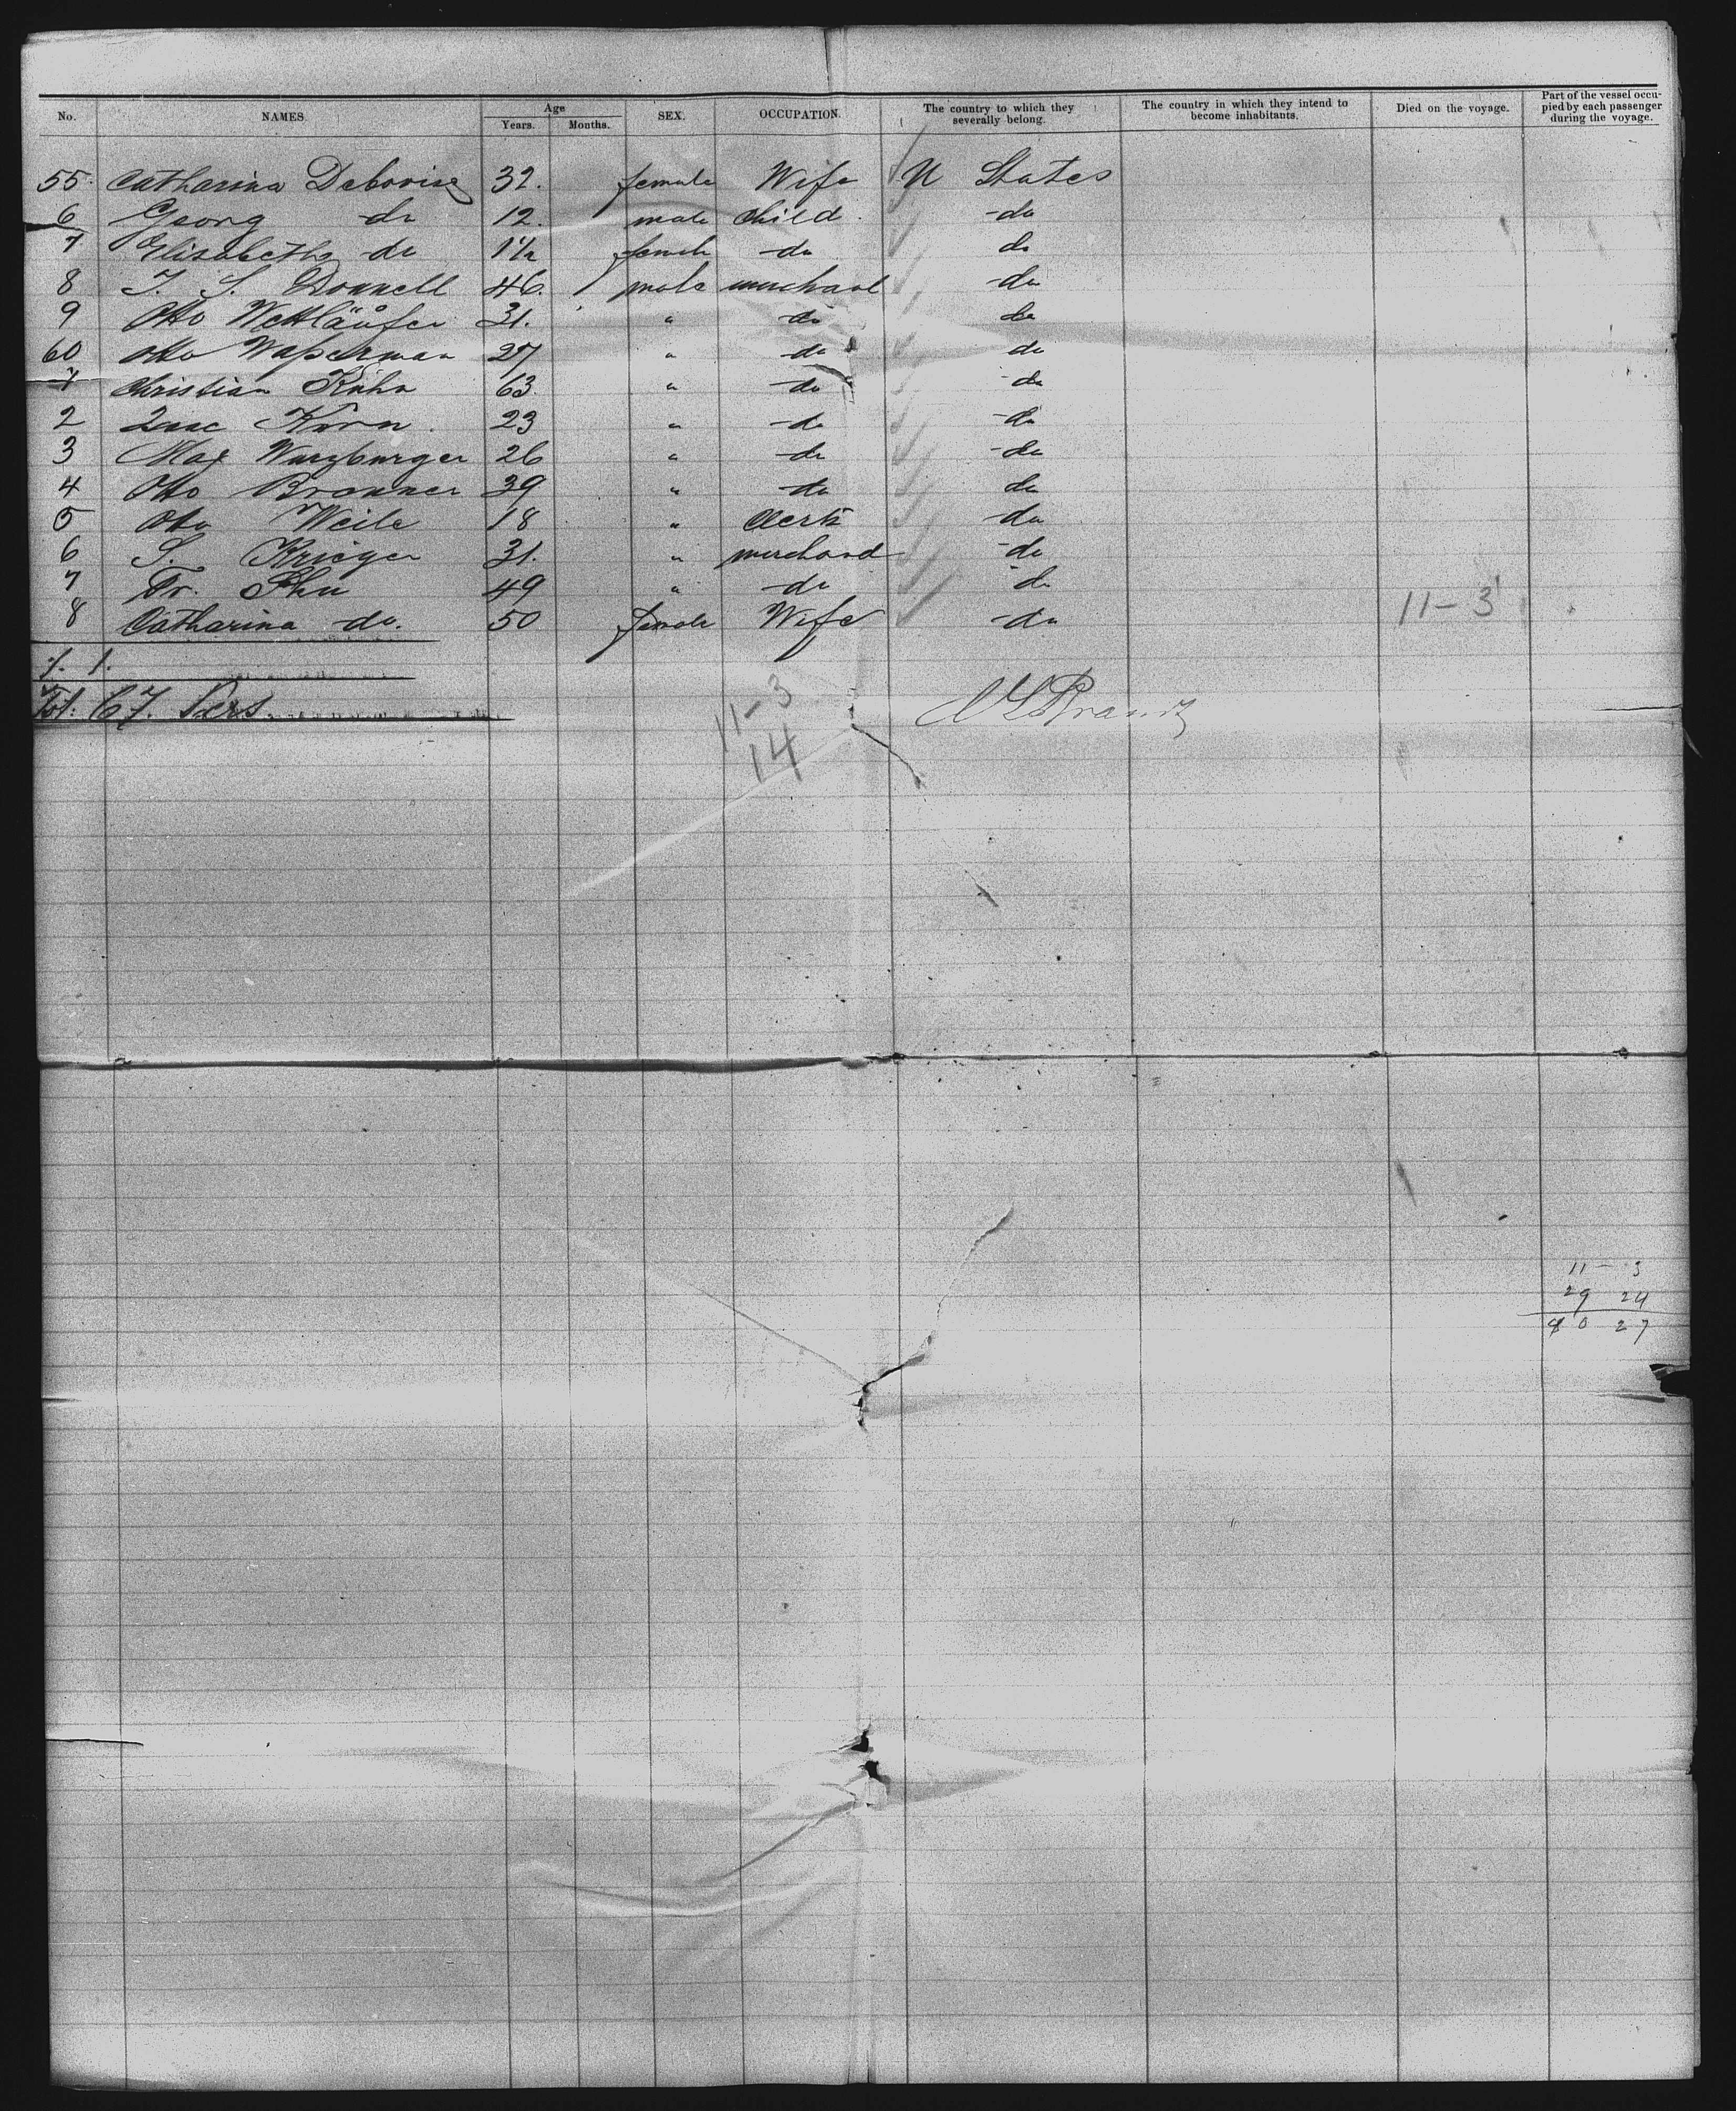 No. NAMES. Age Years. Months. SEX. OCCUPATION. The country to which they severally belong. The country in which they intend to become inhabitants. Died on the voyage. Part of the vessel occupied by each passenger during the voyage.
55. Catharina Debovise 32. female Wife U States
6 Georg do 12. male Child. do
7 Elisabeth do 1 1/2 female do do
8 J. S. Donnell 46. male merchant do
9 Otto Wettläufer 31. " do do
60 Otto Wasserman 27 " do do
1 Christian Kühn 63. " do do
2 Isaac Korn. 23 " do do
3 Max Wurzburger 26 " do do
4 Otto Bronner 39 " do do
5 Otto Weile 18 " Clerk do
6 S. Krieger 31. " merchand do
7 Fr. 49 " do do
8 Catharina do. 50 female Wife do
11-3
1.
Tot: 67. Pers.
11-3
14
11 - 3
29 24
40 27